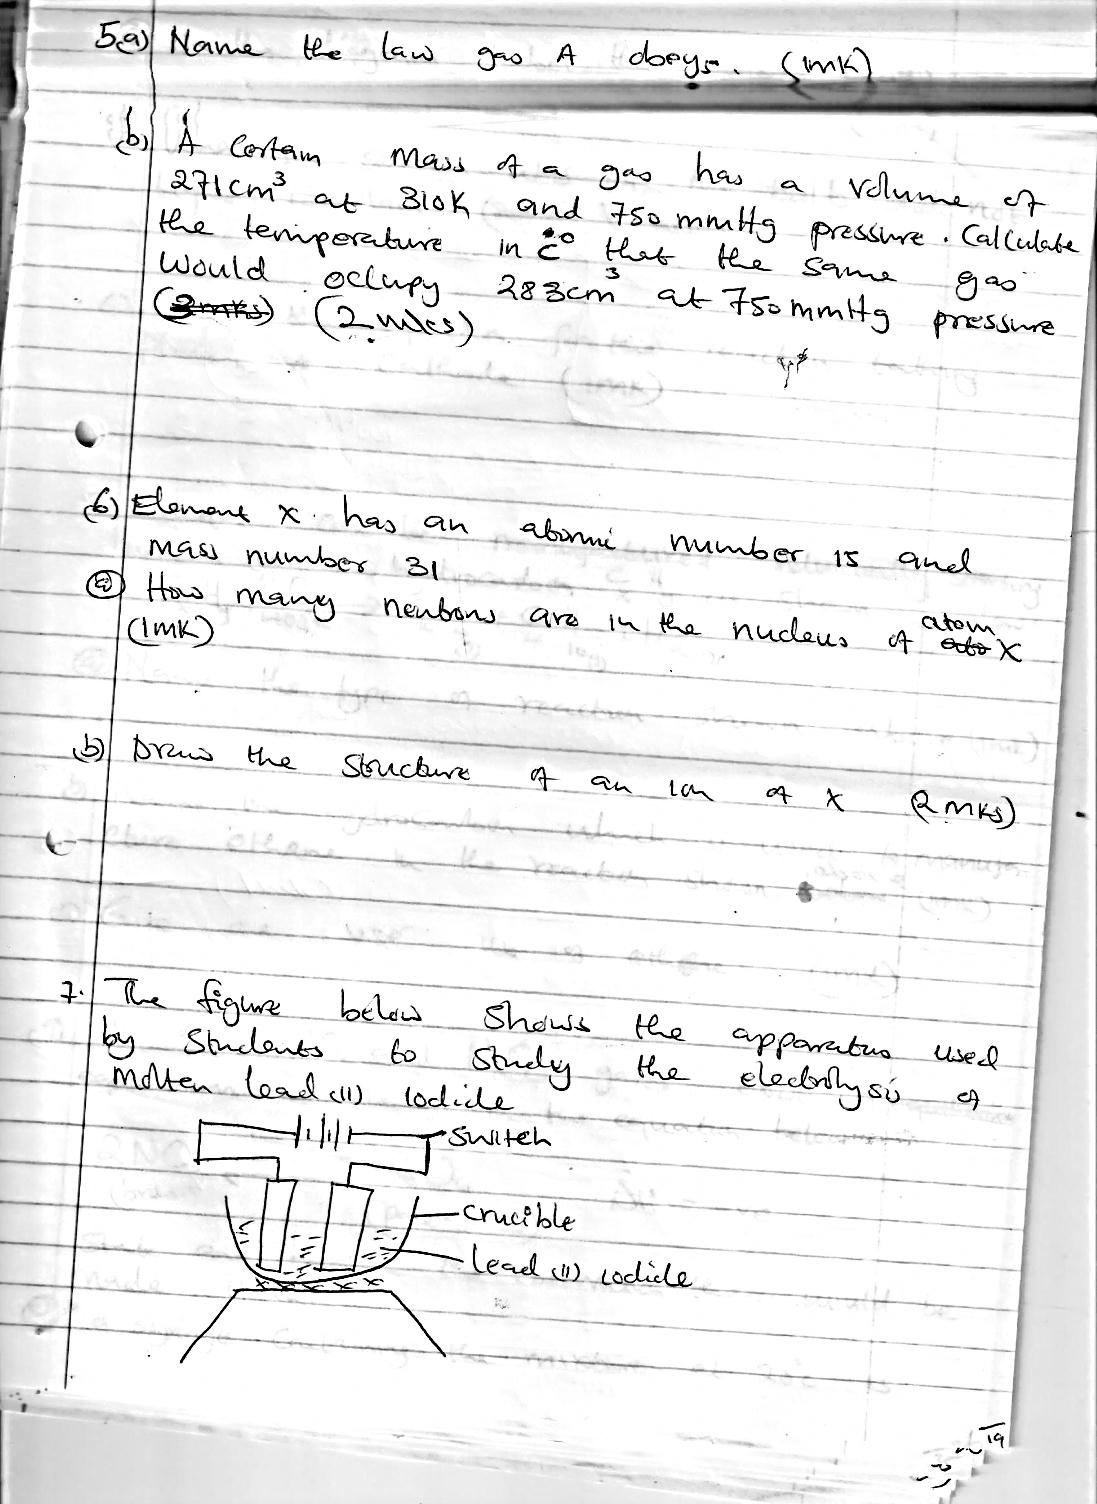 5a) Name the law gas A obeys. (1mk)
b) A certain mass of a gas has a volume of
271cm³ at 310K and 750 mmHg pressure. Calculate
the temperature in C° that the same gas
would occupy 283cm³ at 750mmHg pressure
(2mks) (2mks)
6) Element X has an atomic number 15 and
mass number 31
a) How many neutrons are in the nucleus of atom X
(1mk)
b) Draw the structure of an ion of X (2 mks)
7. The figure below shows the apparatus used
by students to study the electrolysis of
molten lead (II) iodide
switch
crucible
lead (II) iodide
19